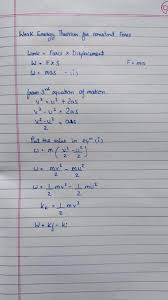 Work Energy Theorem for constant Force
Work = Force × Displacement
W = F × S F = ma
W = mas - (i)
from 3rd equation of motion
v² = u² + 2as
v² - u² = 2as
v² - u² / 2 = as
Put the value in eqⁿ (i)
W = m [v² - u² / 2]
W = mv² / 2 - mu² / 2
W = 1/2 mv² - 1/2 mu²
K_E = 1/2 mv²
W = Kf - Ki